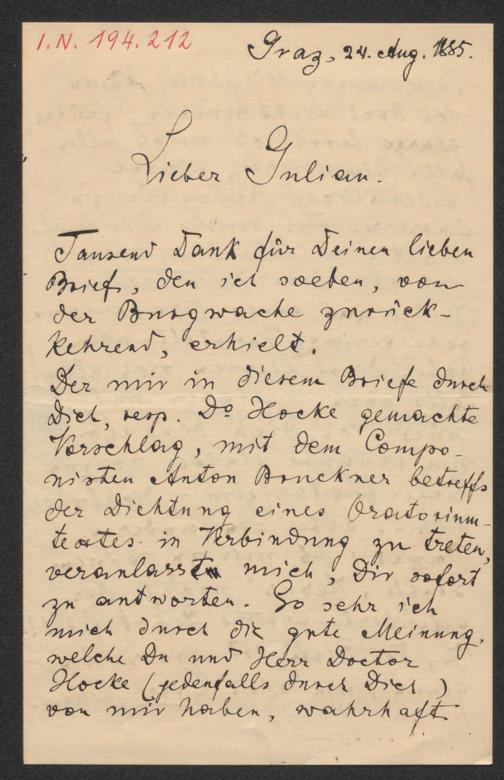 I.N. 194.212
Graz, 24. Aug. 1885.
Lieber Julian.
Tausend Dank für Deinen lieben
Brief, den ich soeben, von
der Burgwache zurück-
kehrend, erhielt.
Der mir in diesem Briefe durch
Dich, resp. Dr Hocke gemachte
Vorschlag, mit dem Compo-
nisten Anton Bruckner betreffs
der Dichtung eines Oratorium-
textes in Verbindung zu treten,
veranlasst mich, Dir sofort
zu antworten. So sehr ich
mich durch die gute Meinung,
welche Du und Herr Doctor
Hocke (jedenfalls durch Dich)
von mir haben, wahrhaft